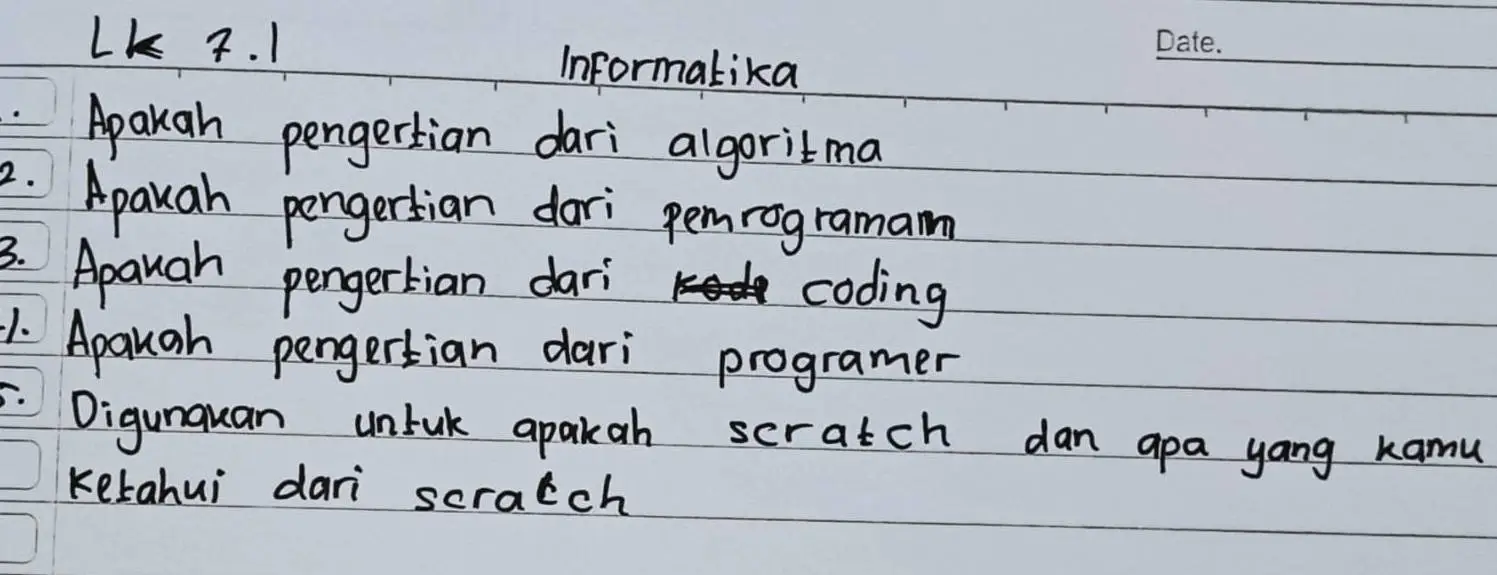 Lk 7.1
Informatika
Date.
1. Apakah pengertian dari algoritma
2. Apakah pengertian dari pemrogramam
3. Apakah pengertian dari coding
4. Apakah pengertian dari programer
5. Digunakan untuk apakah scratch dan apa yang kamu
ketahui dari scratch